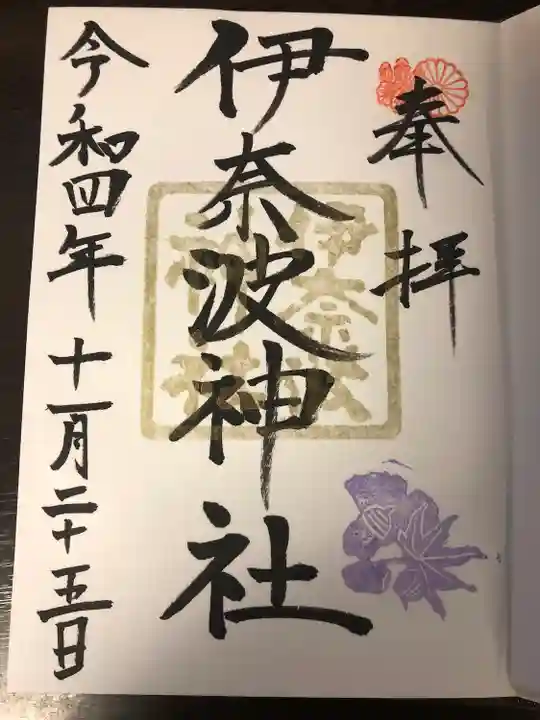 奉拝
伊奈波神社
伊奈波
神社
令和四年十一月二十五日